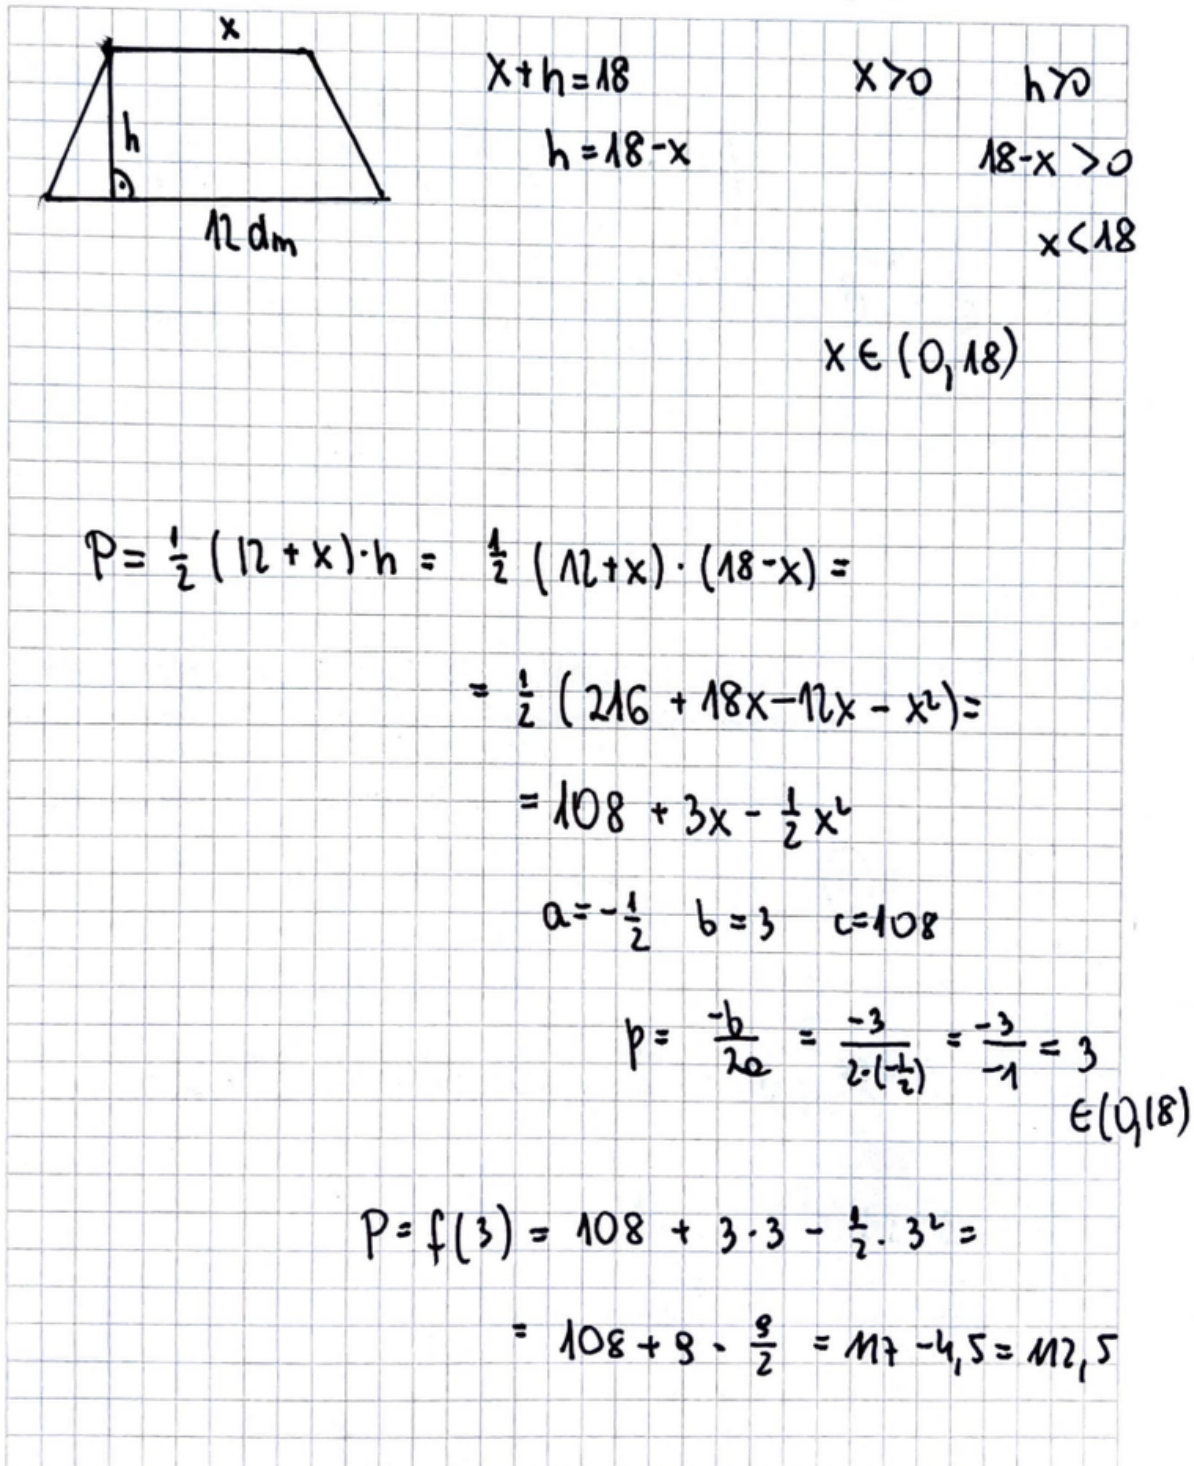 x
h
12 dm
x+h=18 x>0 h>0
h=18-x 18-x>0
x<18
x∈(0,18)
P= 1/2 (12+x)·h = 1/2 (12+x)·(18-x)=
= 1/2 (216+18x-12x-x²)=
=108+3x-1/2x²
a=-1/2 b=3 c=108
p= -b/2a = -3/2·(-1/2) = -3/-1 = 3
∈(0,18)
P=f(3)= 108+3·3-1/2·3²=
= 108+9-9/2 = 117-4,5=112,5